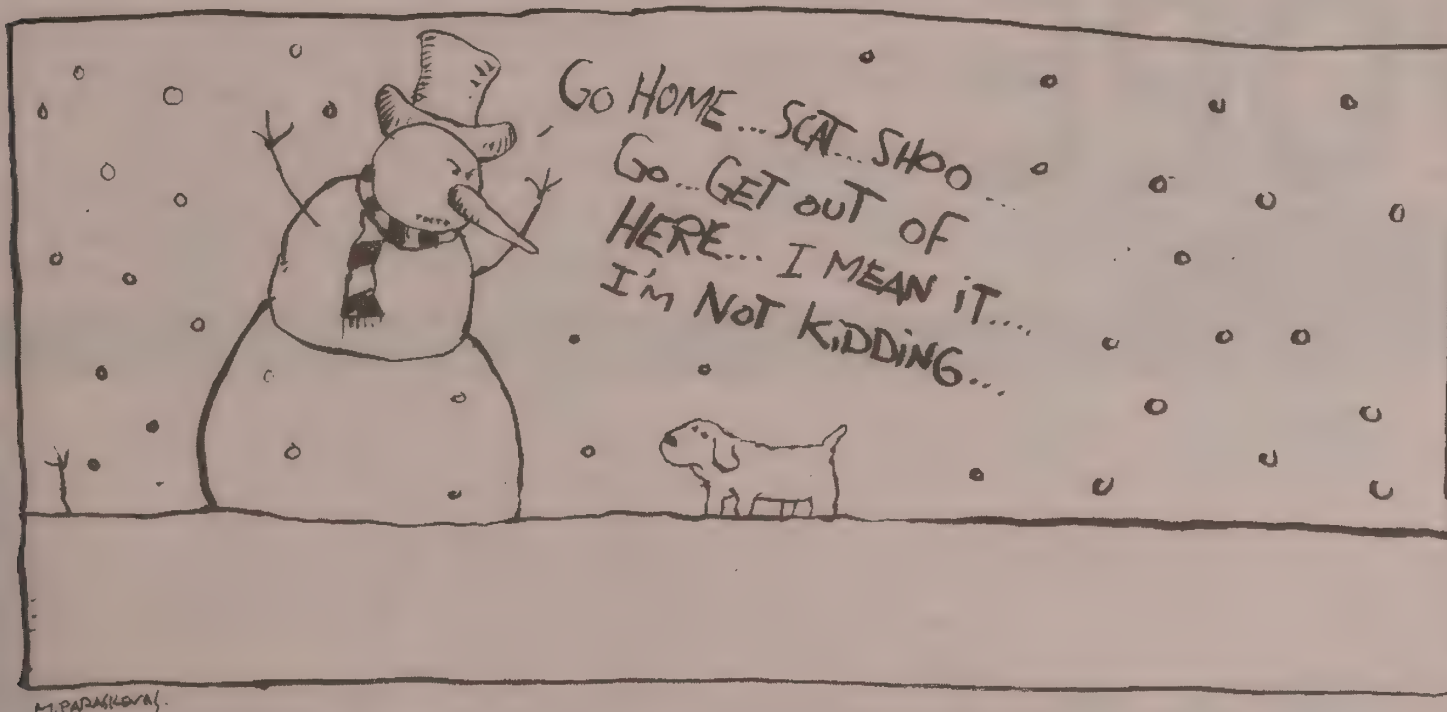 GO HOME... SCAT... SHOO...
GO... GET OUT OF
HERE... I MEAN iT....
I'm NOT KiDDiNG...
M. PARASKEVAS.